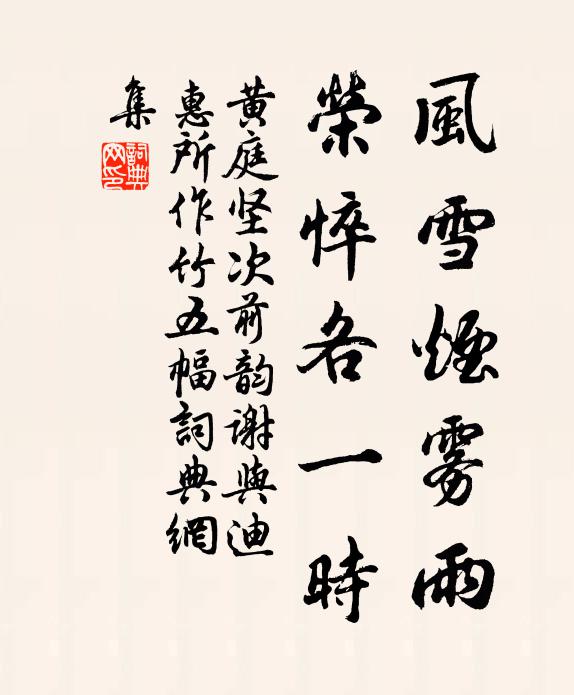 風雪煙雾雨
榮悴各一時
黄庭坚次前韵谢與迪
惠所作竹五幅詞典網
集
詞典网印